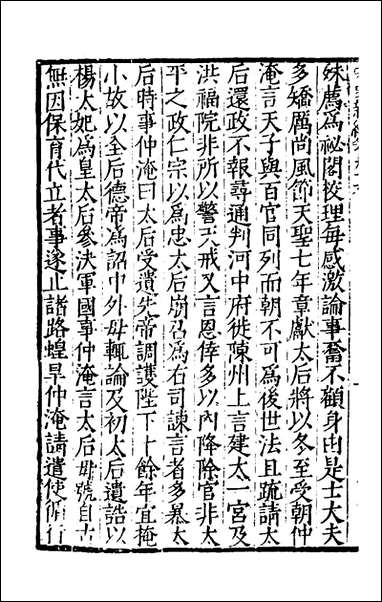 殊薦為祕閣校理每感激論事奮不顧身由是士大夫
多矯厲尚風節天聖七年章獻太后將以冬至受朝仲
淹言天子與百官同列而朝不可為後世法且疏請太
后還政不報尋通判河中府徙陳州上言建太一宮及
洪福院非所以警天戒又言恩倖多以內降除官非太
平之政仁宗以為忠太后崩召為右司諫言者多暴太
后時事仲淹曰太后受遺先帝調護陛下十餘年宜掩
小故以全后德帝為詔中外毋輒論及初太后遺誥以
楊太妃為皇太后參決軍國事仲淹言太后母號自古
無因保育代立者事遂止諸路蝗旱仲淹請遣使循行